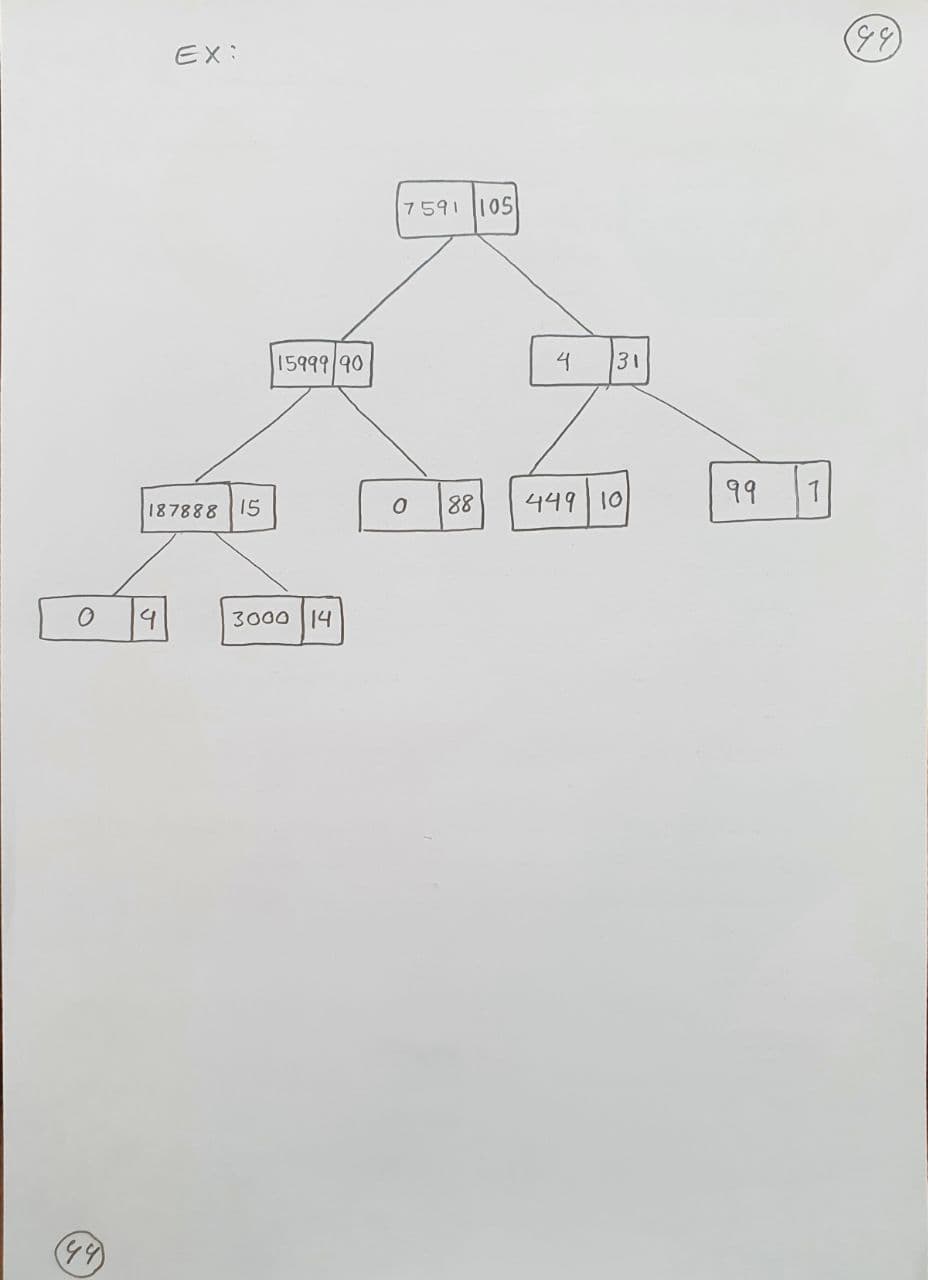 EX:
44
7591 105
15999 90 4 31
187888 15 0 88 449 10 99 7
0 4 3000 14
44